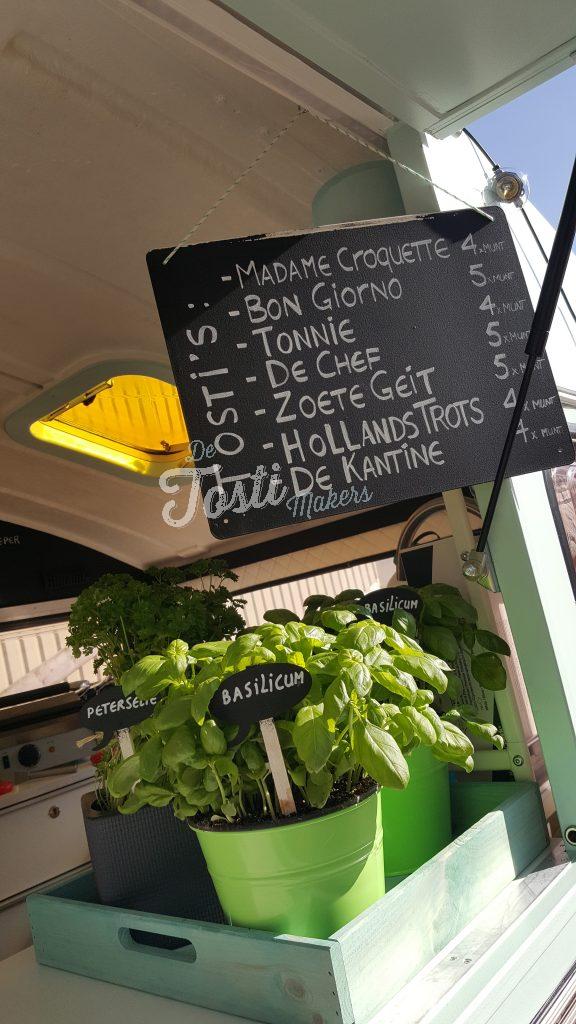 TOSTI'S:
- MADAME CROQUETTE 4 x MUNT
- BON GIORNO 5 x MUNT
- TONNIE 4 x MUNT
- DE CHEF 5 x MUNT
- ZOETE GEIT 5 x MUNT
- HOLLANDS TROTS 4 x MUNT
- DE KANTINE 4 x MUNT
De
Tosti
Makers
BASILICUM
PETERSELIE
BASILICUM